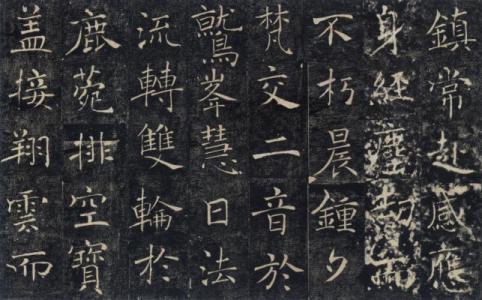 鎮常赴感應
身經塵劫而
不朽晨鍾夕
梵交二音於
鷲峯慧日法
流轉雙輪於
鹿菀排空寶
盖接翔雲而